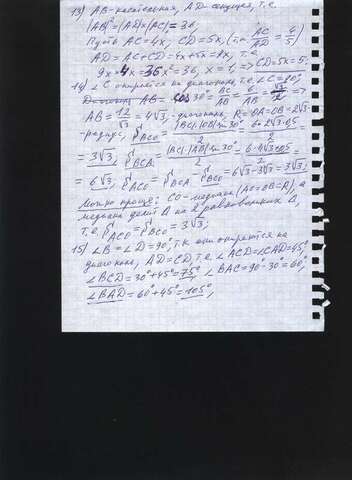 13) AB - касательная, AD - секущая, т.е.
|AB|² = |AD|×|AC| = 36
Пусть AC=4x; CD=5x (
AD = AC+CD = 4x+5x = 9x, т.е.
9x·4x = 36x² = 36, x=1, => CD=5x=5.
14) ∠C опирается на диагональ, т.е. ∠C=90°,
AB = cos30° = BC/AB = 6/AB = √3/2 =>
AB = 12/√3 = 4√3, - диагональ, R=OA=OB=2√3
- радиус, S BCO = |BC|·|OB| sin30°/2 = 6·2√3·0,5/2
= 3√3, S BCA = |BC|·|AB| sin30°/2 = 6·4√3·0,5/2
= 6√3, S ACO = S BCA - S BCO = 6√3-3√3 = 3√3;
Можно проще: CO - медиана (AO=OB=R), а
медиана делит Δ на 2 равновеликих Δ,
т.е. S ACO = S BCO = 3√3.
15) ∠B = ∠D = 90°, т.к. они опираются на
диагональ, AD=CD, т.е. ∠ACD=∠CAD=45°
∠BCD = 30°+45° = 75° ∠BAC = 90°-30° = 60°,
∠BAD = 60°+45° = 105°,